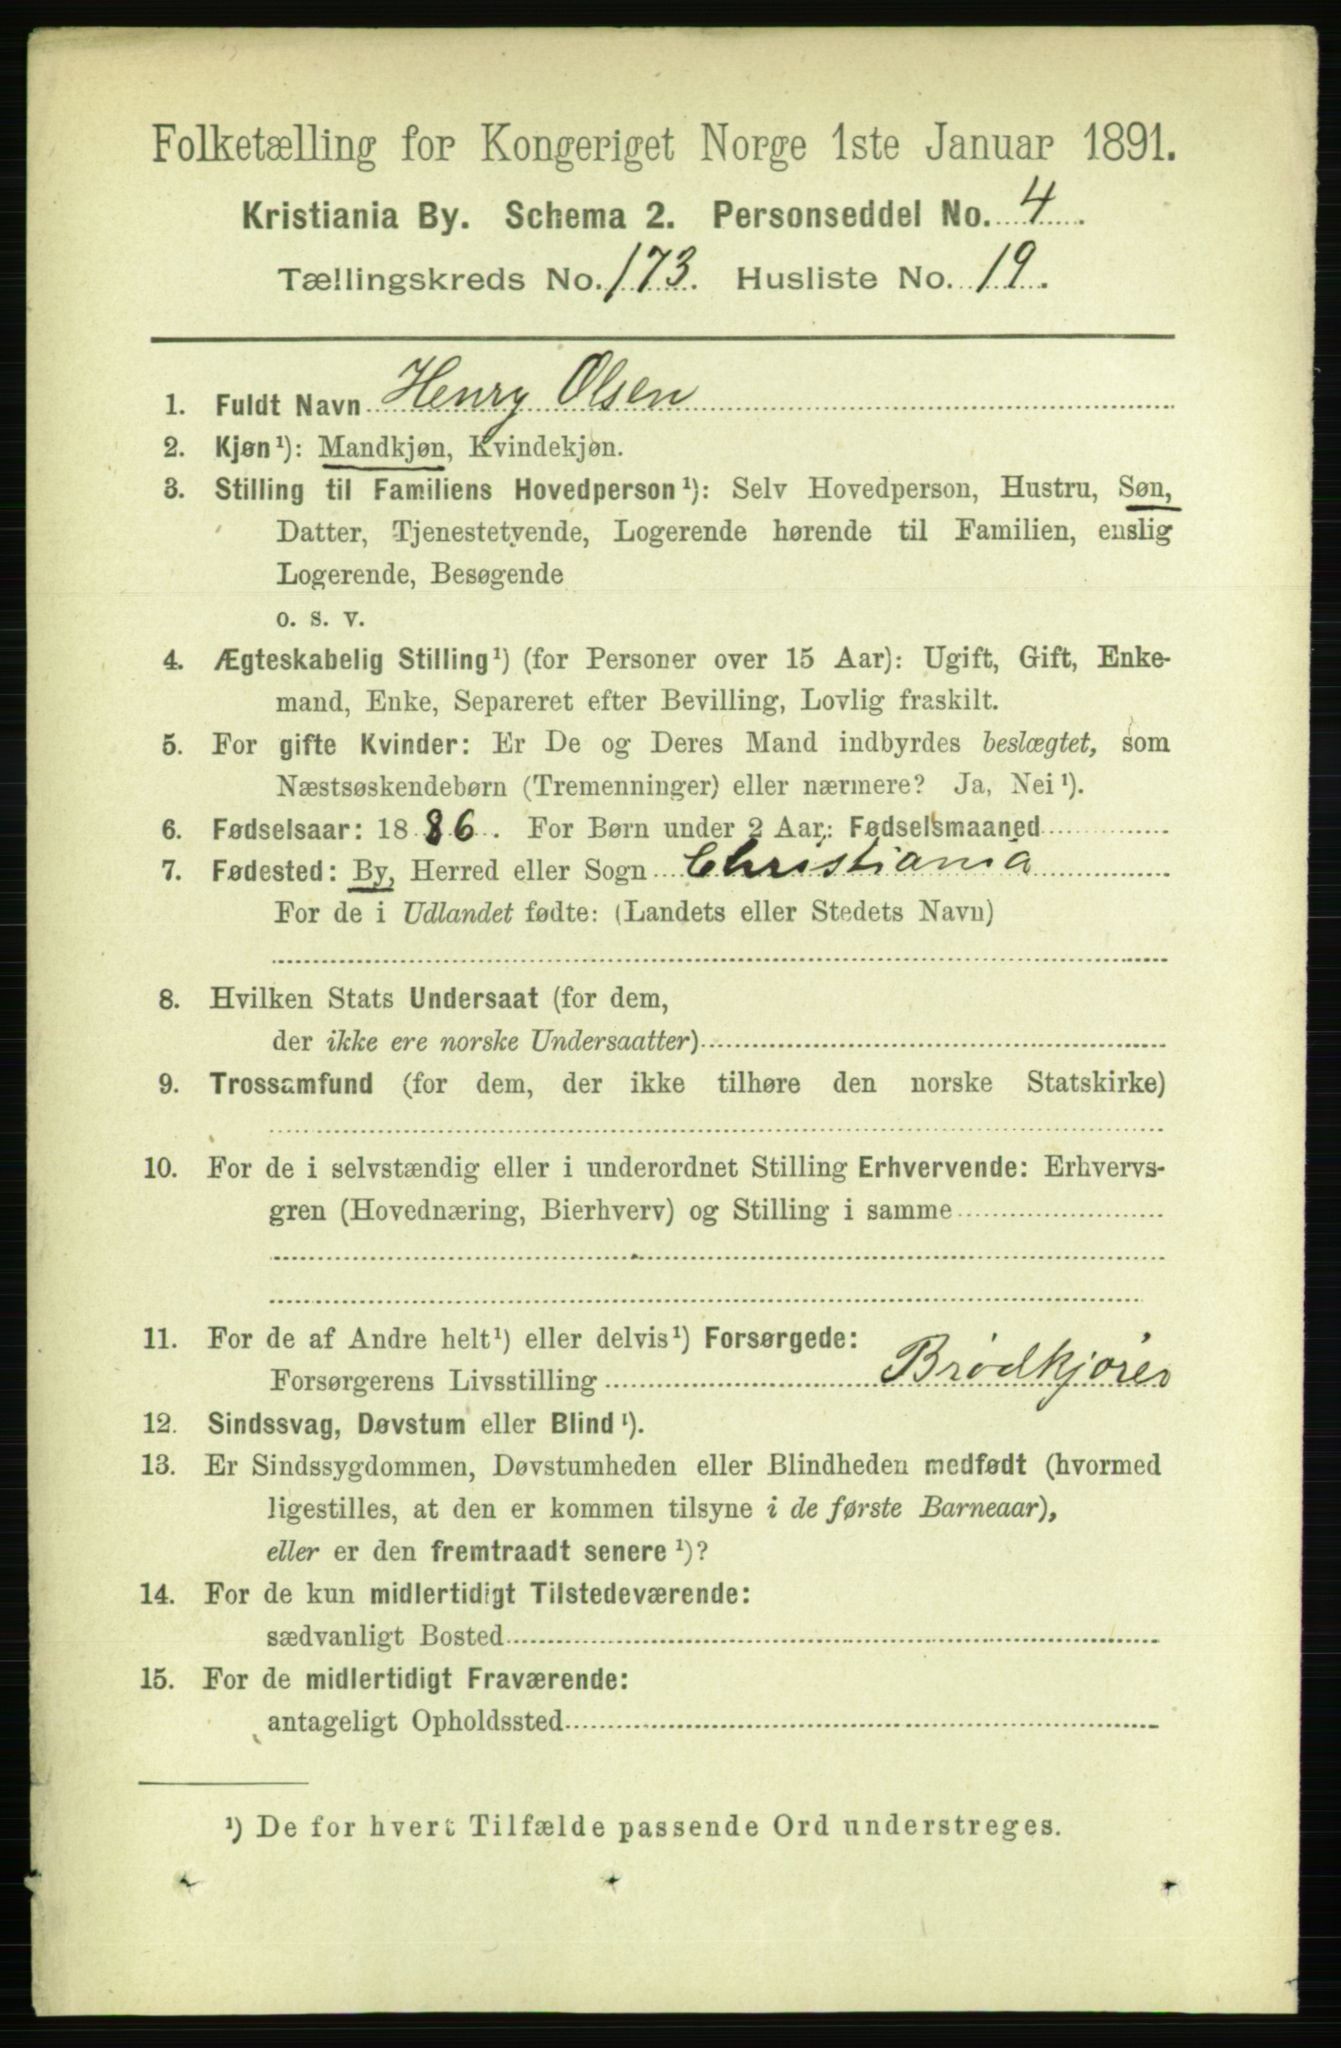 Folketælling for Kongeriget Norge 1ste Januar 1891.
Kristiania By. Schema 2. Personseddel No. 4.
Tællingskreds No. 173. Husliste No. 19.
1. Fuldt Navn Henry Olsen
2. Kjøn¹): Mandkjøn, Kvindekjøn.
3. Stilling til Familiens Hovedperson¹): Selv Hovedperson, Hustru, Søn,
Datter, Tjenestetyende, Logerende hørende til Familien, enslig
Logerende, Besøgende
o. s. v.
4. Ægteskabelig Stilling¹) (for Personer over 15 Aar): Ugift, Gift, Enke-
mand, Enke, Separeret efter Bevilling, Lovlig fraskilt.
5. For gifte Kvinder: Er De og Deres Mand indbyrdes beslægtet, som
Næstsøskendebørn (Tremenninger) eller nærmere? Ja, Nei¹).
6. Fødselsaar: 1886. For Børn under 2 Aar: Fødselsmaaned
7. Fødested: By, Herred eller Sogn Christiania
For de i Udlandet fødte: (Landets eller Stedets Navn)
8. Hvilken Stats Undersaat (for dem,
der ikke ere norske Undersaatter)
9. Trossamfund (for dem, der ikke tilhøre den norske Statskirke)
10. For de i selvstændig eller i underordnet Stilling Erhvervende: Erhvervs-
gren (Hovednæring, Bierhverv) og Stilling i samme
11. For de af Andre helt¹) eller delvis¹) Forsørgede:
Forsørgerens Livsstilling Brödkjörer
12. Sindssvag, Døvstum eller Blind¹).
13. Er Sindssygdommen, Døvstumheden eller Blindheden medfødt (hvormed
ligestilles, at den er kommen tilsyne i de første Barneaar),
eller er den fremtraadt senere¹)?
14. For de kun midlertidigt Tilstedeværende:
sædvanligt Bosted
15. For de midlertidigt Fraværende:
antageligt Opholdssted
¹) De for hvert Tilfælde passende Ord understreges.